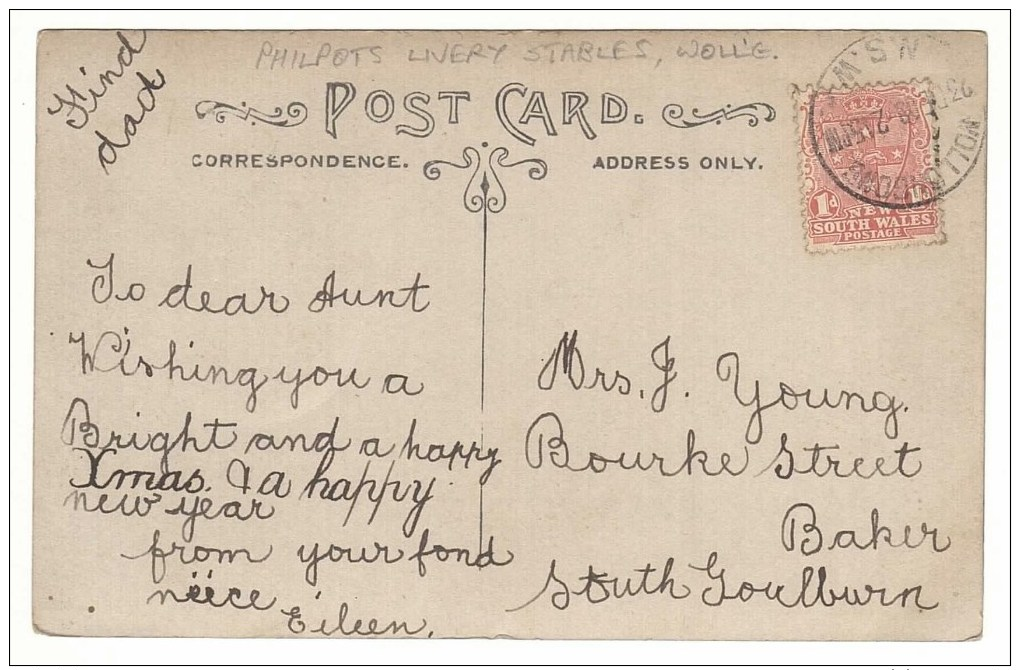 PHILPOTS LIVERY STABLES, WOLL'G.
Kind
dad
POST CARD.
CORRESPONDENCE.
ADDRESS ONLY.
N.S.W
WOLLONGONG
1d 1d
NEW
SOUTH WALES
POSTAGE
To dear Aunt
Wishing you a
Bright and a happy
Xmas. & a happy
new year
from your fond
neice
Eileen.
Mrs. J. Young.
Bourke Street
Baker
South Goulburn